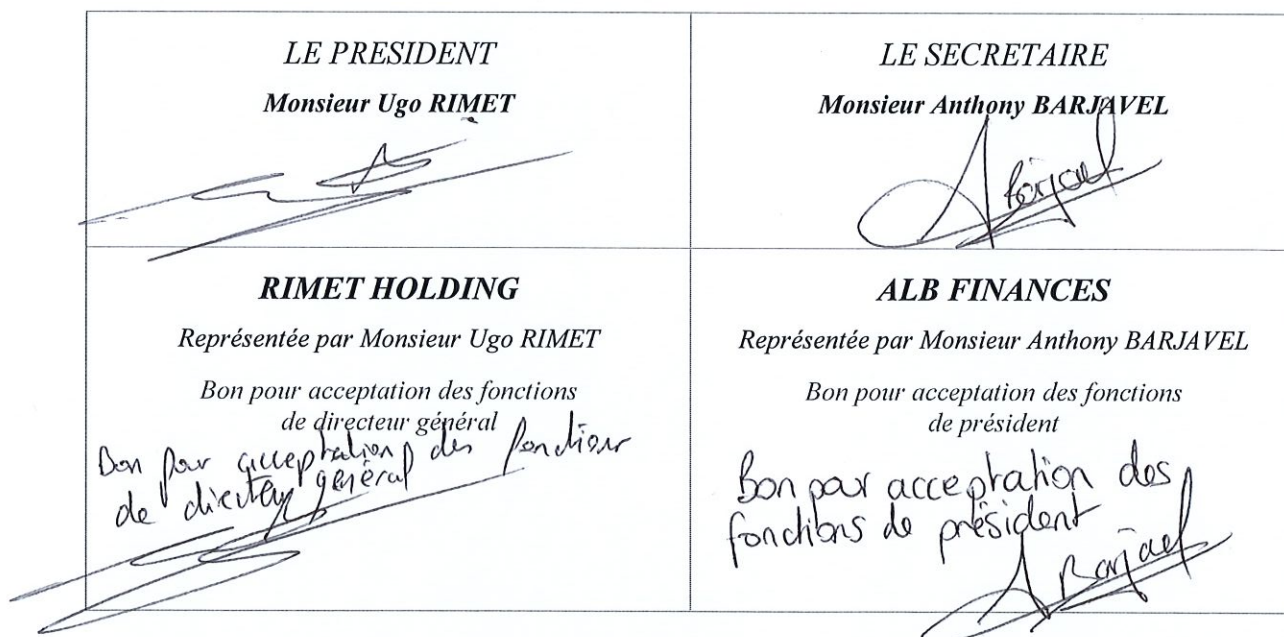 LE PRESIDENT
Monsieur Ugo RIMET
LE SECRETAIRE
Monsieur Anthony BARJAVEL
A Barjavel
RIMET HOLDING
Représentée par Monsieur Ugo RIMET
Bon pour acceptation des fonctions
de directeur général
Bon pour acceptation des fonctions
de directeur général
ALB FINANCES
Représentée par Monsieur Anthony BARJAVEL
Bon pour acceptation des fonctions
de président
Bon pour acceptation des
fonctions de président
A Barjavel